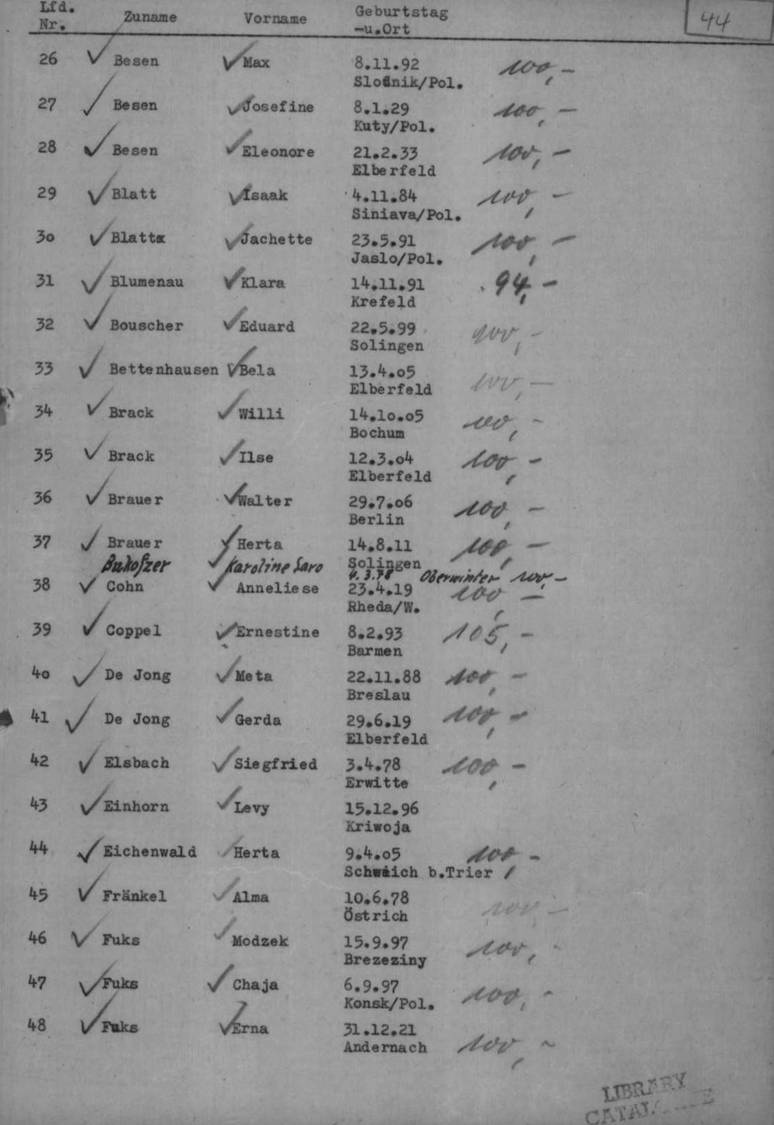 Lfd. Zuname Vorname Geburtstag 44
Nr. -u.Ort
26 Besen Max 8.11.92 100,-
Slodnik/Pol.
27 Besen Josefine 8.1.29 100,-
Kuty/Pol.
28 Besen Eleonore 21.2.33 100,-
Elberfeld
29 Blatt Isaak 4.11.84 100,-
Siniava/Pol.
3o Blatt Jachette 23.5.91 100,-
Jaslo/Pol.
31 Blumenau Klara 14.11.91 94,-
Krefeld
32 Bouscher Eduard 22.5.99 100,-
Solingen
33 Bettenhausen Bela 13.4.o5 100,-
Elberfeld
34 Brack Willi 14.1o.o5 100,-
Bochum
35 Brack Ilse 12.3.o4 100,-
Elberfeld
36 Brauer Walter 29.7.o6 100,-
Berlin
37 Brauer Herta 14.8.11 100,-
Solingen
Bukofzer Karoline Sara 4.3.78 Oberwinter 100,-
38 Cohn Anneliese 23.4.19 100,-
Rheda/W.
39 Coppel Ernestine 8.2.93 105,-
Barmen
4o De Jong Meta 22.11.88 100,-
Breslau
41 De Jong Gerda 29.6.19 100,-
Elberfeld
42 Elsbach Siegfried 3.4.78 100,-
Erwitte
43 Einhorn Levy 15.12.96
Kriwoja
44 Eichenwald Herta 9.4.o5 100,-
Schweich b.Trier
45 Fränkel Alma 10.6.78 100,-
Östrich
46 Fuks Modzek 15.9.97 100,-
Brezeziny
47 Fuks Chaja 6.9.97 100,-
Konsk/Pol.
48 Fuks Erna 31.12.21 100,-
Andernach
LIBRARY